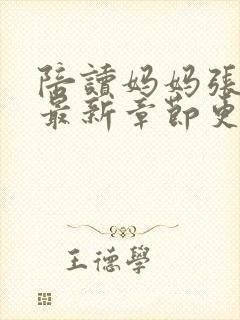 陪讀妈妈張
最新章節更
王德學